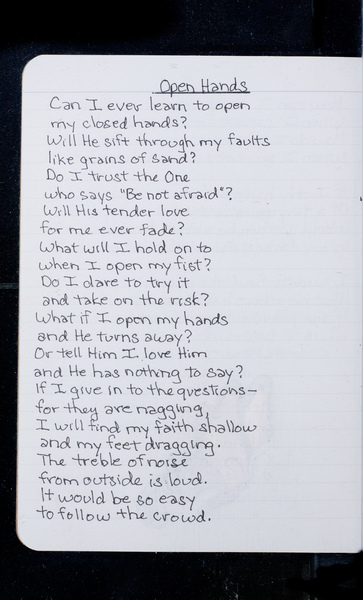 Open Hands
Can I ever learn to open
my closed hands?
Will He sift through my faults
like grains of sand?
Do I trust the One
who says "Be not afraid"?
Will His tender love
for me ever fade?
What will I hold on to
when I open my fist?
Do I dare to try it
and take on the risk?
What if I open my hands
and He turns away?
Or tell Him I love Him
and He has nothing to say?
If I give in to the questions—
for they are nagging,
I will find my faith shallow
and my feet dragging.
The treble of noise
from outside is loud.
It would be so easy
to follow the crowd.